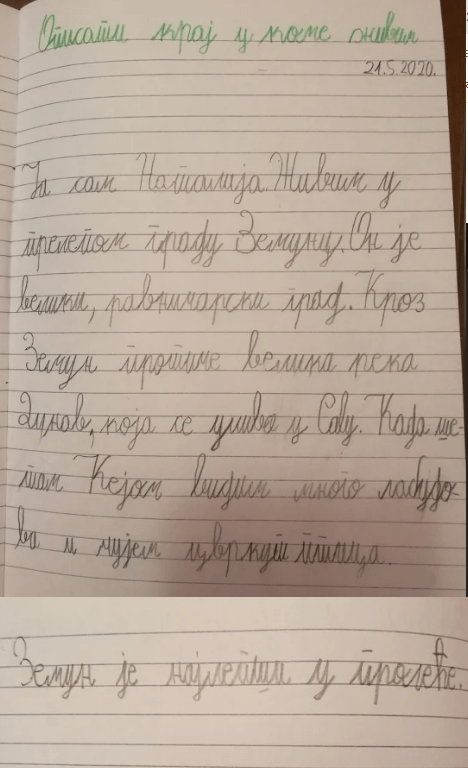 Описати крај у коме живим
21.5.2020.
Ја сам Наталија. Живим у
прелепом граду Земуну. Он је
велики, равничарски град. Кроз
Земун протиче велика река
Дунав, која се улива у Саву. Када ше-
там Кејом видим много лабудо-
ва и чујем цвркут птица.
Земун је најлепши у пролеће.